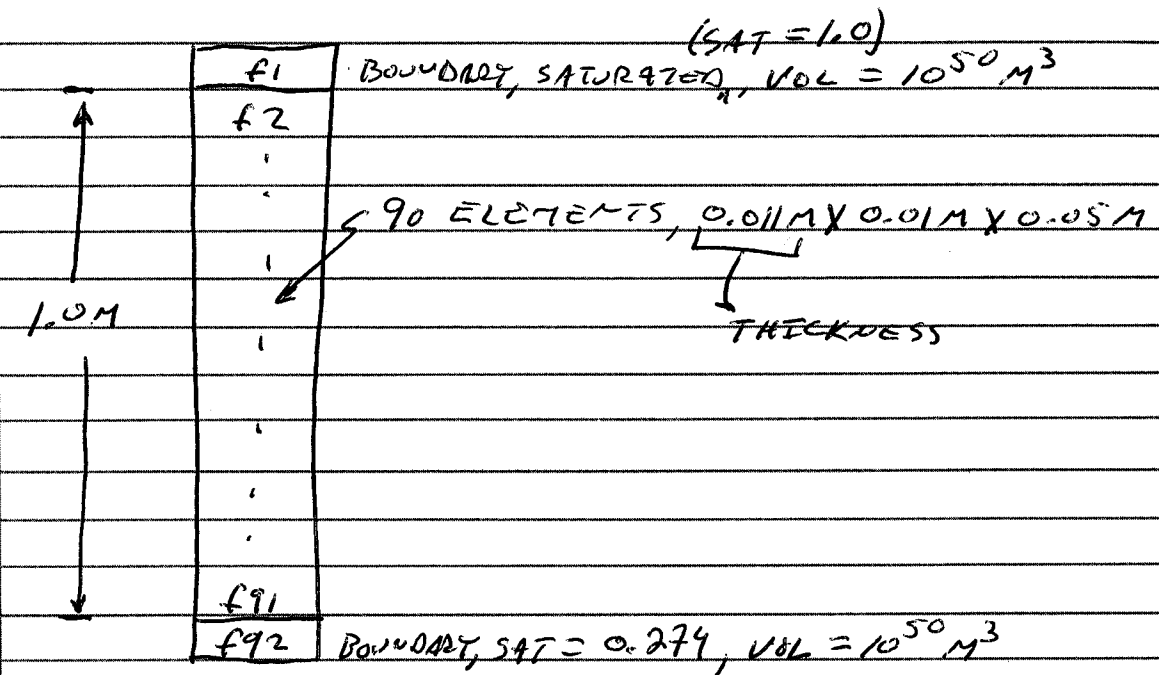 (SAT = 1.0)
f1 BOUNDARY, SATURATED, VOL = 10^50 M^3
f2
90 ELEMENTS, 0.011M X 0.01M X 0.05M
1.0M
THICKNESS
f91
f92 BOUNDARY, SAT = 0.274, VOL = 10^50 M^3